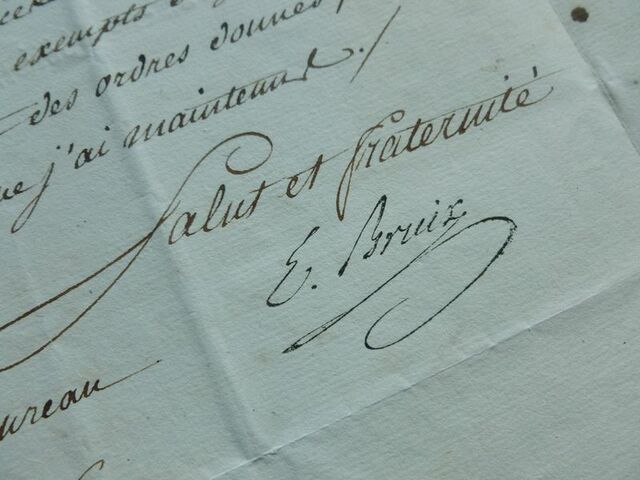 exempts
des ordres donnés
j'ai maintenu./
Salut et fraternité
E. Bruix
ureau